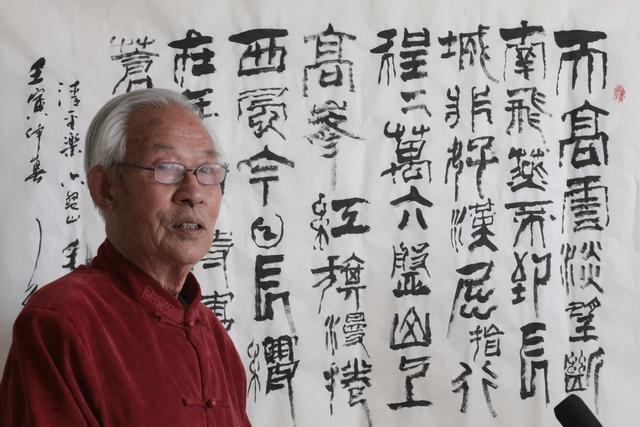 天高雲淡望斷
南飛雁不到長
城非好漢屈指行
程二萬六盤山上
高峯紅旗漫捲
西風今日長纓
在手時縛
蒼
清平樂六盤山
壬寅仲春